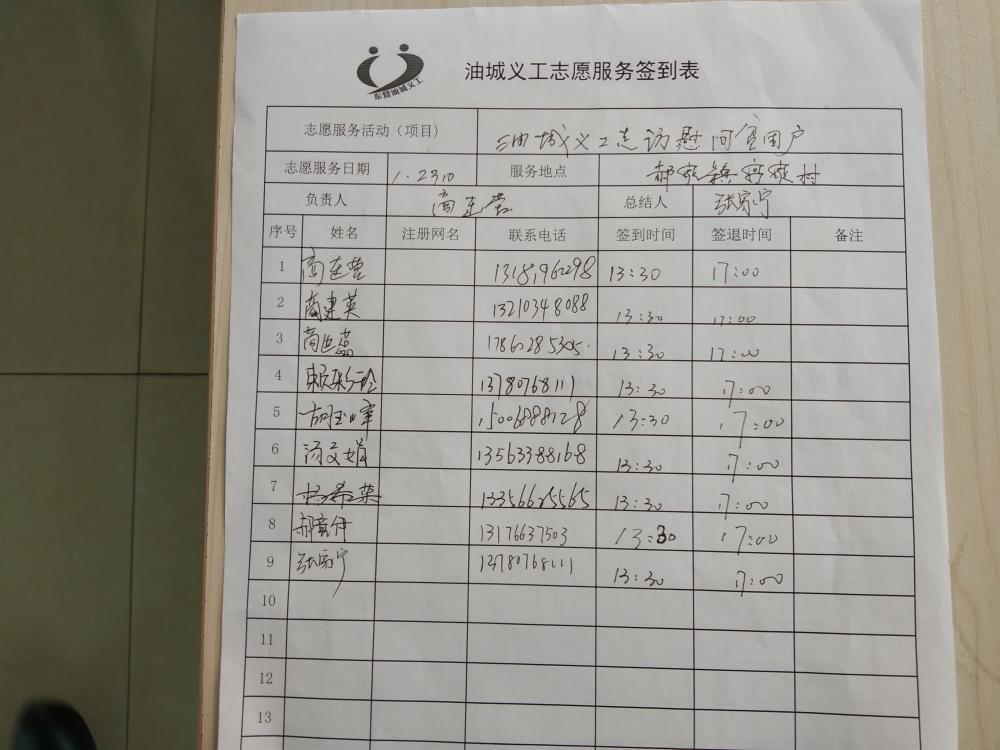 东营油城义工
油城义工志愿服务签到表
志愿服务活动（项目） 油城义工走访慰问贫困户
志愿服务日期 1.23日 服务地点 郝家镇 村
负责人 商连营 总结人 张家宁
序号 姓名 注册网名 联系电话 签到时间 签退时间 备注
1 商连营 13181960298 13:30 17:00
2 商建英 13210348088 13:30 17:00
3 17860285305 13:30 17:00
4 13780768111 13:30 17:00
5 15006888128 13:30 17:00
6 汤文娟 13563388168 13:30 17:00
7 杨希荣 13356625565 13:30 17:00
8 13176637503 13:30 17:00
9 张家宁 13780768111 13:30 17:00
10
11
12
13